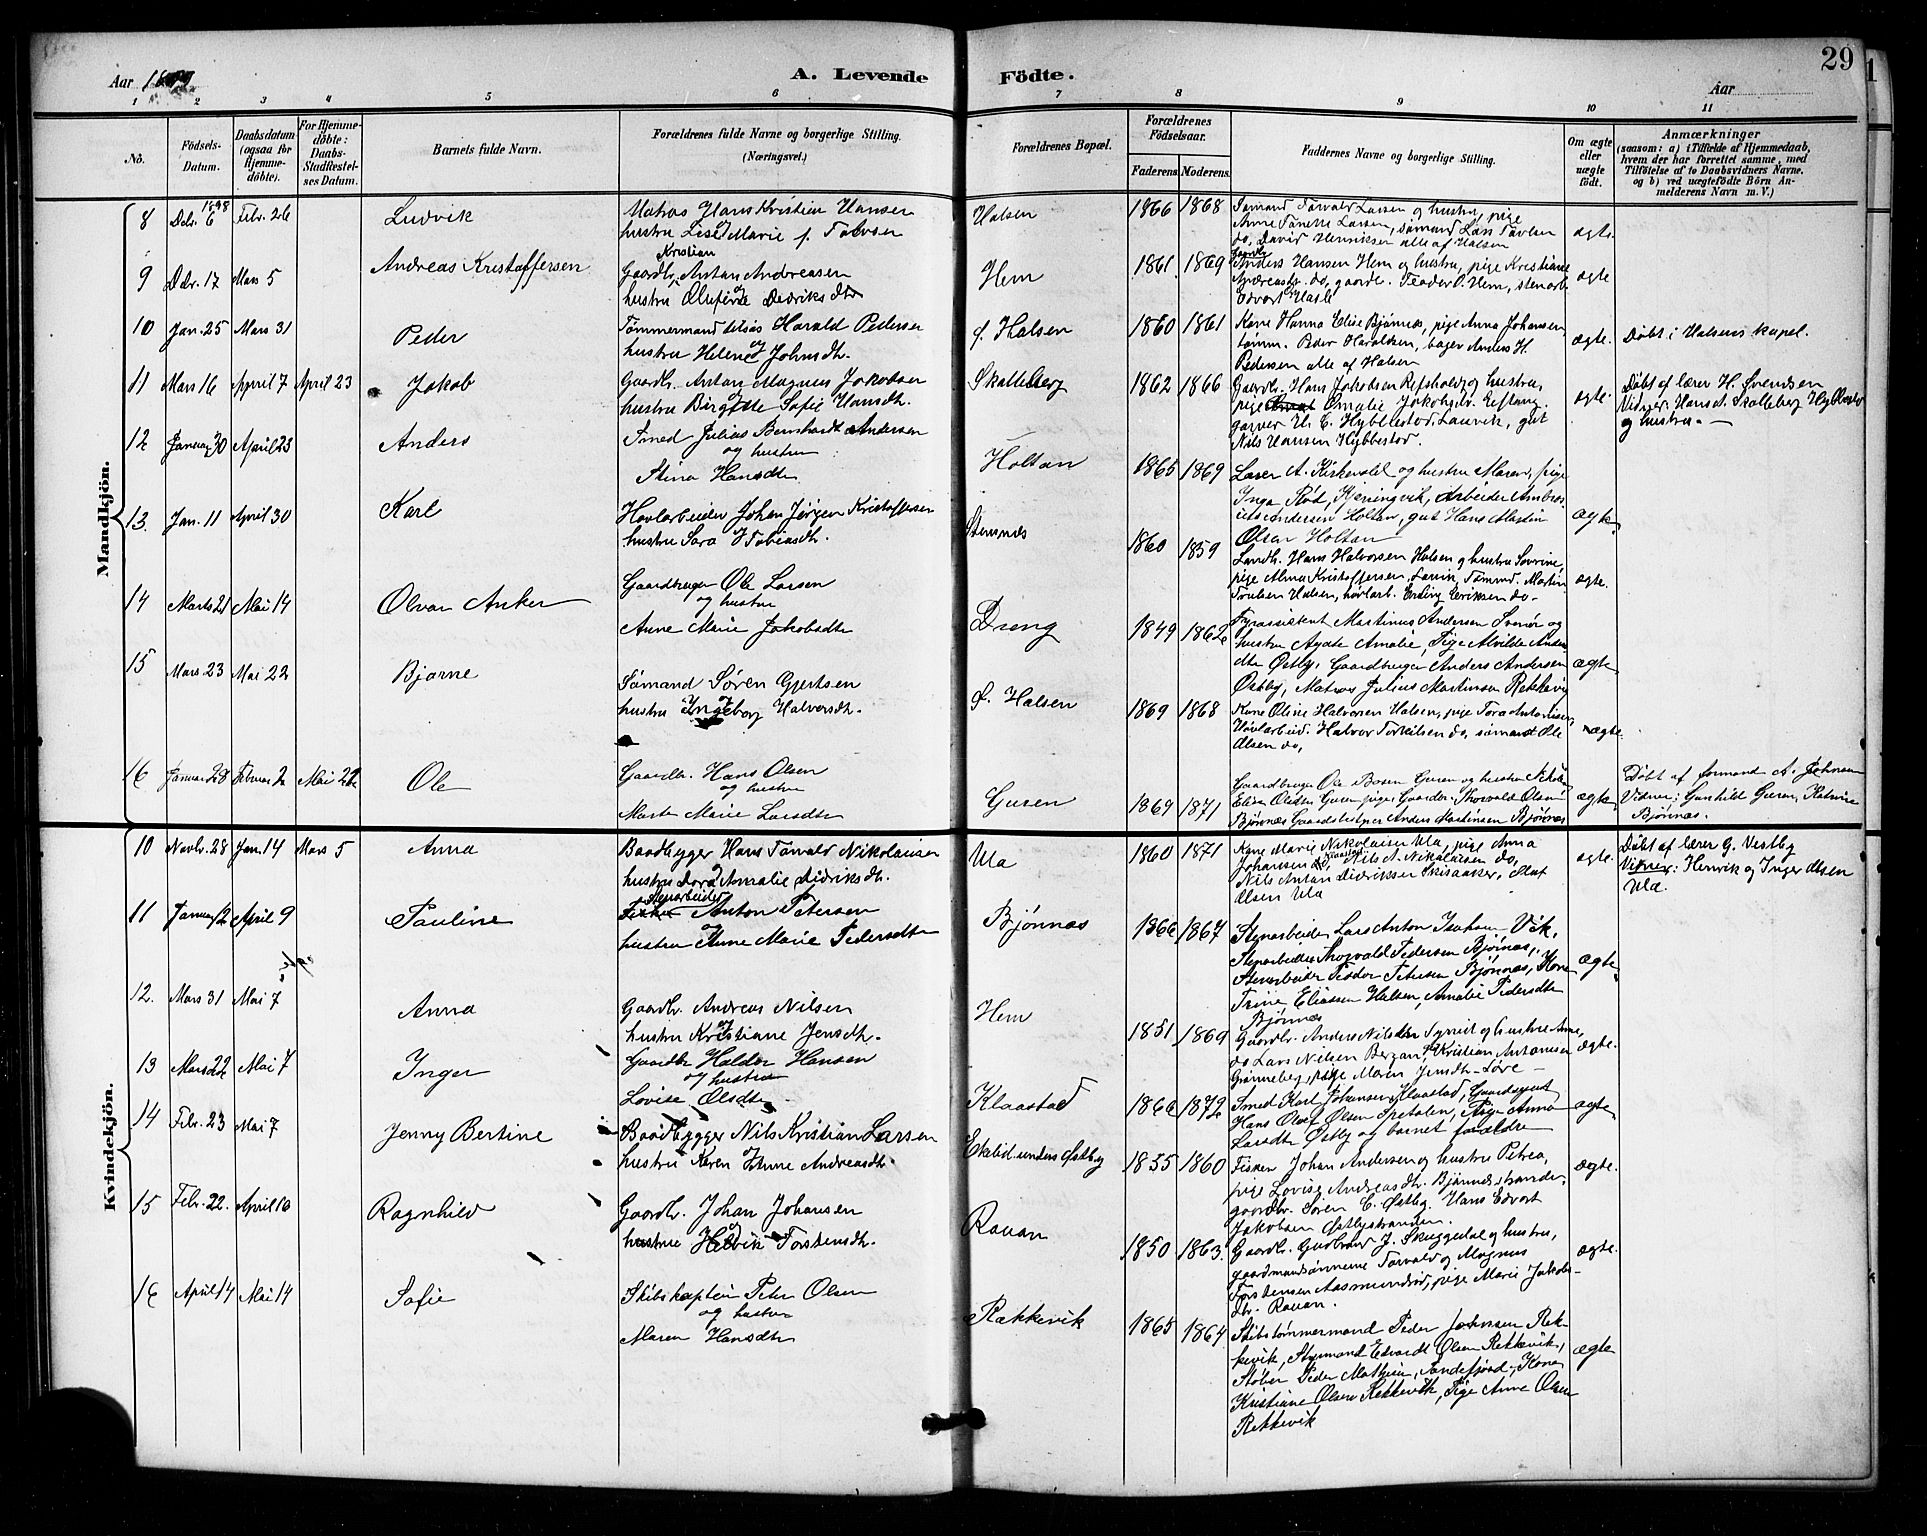 29
Aar 1899
A. Levende Födte.
Aar
1 2 3 4 5 6 7 8 9 10 11
No.
Födsels-Datum.
Daabsdatum (ogsaa for Hjemme-döbte).
For Hjemme-döbte: Daabs-Stadfæstel-ses Datum.
Barnets fulde Navn.
Forældrenes fulde Navne og borgerlige Stilling. (Næringsvei.)
Forældrenes Bopæl.
Forældrenes Födselsaar.
Faderens Moderens
Faddernes Navne og borgerlige Stilling.
Om ægte eller uægte födt.
Anmærkninger
(saasom: a) i Tilfælde af Hjemmedaab,
hvem der har forrettet samme, med
Tilföielse af to Daabsvidners Navne.
og b) ved uægtefödte Börn An-
melderens Navn m. V.)
Mandkjön.
8 Dcbr. 6 1898 Febr. 26 Ludvik
Matros Hans Kristian Hansen
hustru Lise Marie f. Tolvsen
Halsen 1866 1868
Sømand Torvald Larsen og hustru, pige
Anne Tonette Larsen, sømand Lars Tovsen
do, David Henriksen alle af Halsen
ægte.
9 Dcbr. 17 Mars 5 Andreas Kristoffersen
Kristian
Gaardbr. Antan Andreasen
hustru Olufine Dedriksdtr
Hem 1861. 1869
Anders Hansen Hem og hustru, pige Kristiane
Edvart Hasle
ægte
10 Jan. 25 Mars 31 Peder
Tømmermand Harald Pedersen
hustru Helene Johnsdtr.
Ø. Halsen 1860 1861
Kone Hanna Elise Bjønnes, pige Anna Johansen,
tømm. Peder Haraldsen, bager Anders H.
Pedersen alle af Halsen
ægte. Døbt i Halsens kapel.
11 Mars 16 April 7 April 23 Jakob
Gaardbr. Antan Magnus Jakobsen
hustru Birgitte Sofie Hansdtr.
Skalleberg 1862 1866
Gaardbr. Hans Jakobsen Refsholdt og hustru,
pige Omalie Jakobsdtr. Eftang,
garver H. C. Hybbestad, Laurvik, gut
Nils Hansen Hybbestad.
ægte.
Døbt af lærer H. Svendsen
Vidner: Hans A. Skalleberg Hybbestad
og hustru. —
12 Januar 30 April 23 Anders
Smed Julius Bernhardt Andersen
og hustru
Stina Hansdtr
Holtan 1865 1869
Lærer A. Kirkevold og hustru Maren, pige
Inga Rød, Kjeningvik, Arbeider Ambros
Andersen Holtan, gut Hans Martin
Olsen Holtan
ægte
13. Jan. 11 April 30 Karl
Høvlarbeider Johan Jörgen Kristoffersen
hustru Sara Tobiasdtr.
Stensnæs 1860 1859
Landh. Hans Halvorsen Halsen og hustru Severine,
pige Alma Kristoffersen, Laurvik Tømmd. Martin
Poulsen Halsen, høvlarb. Erling Eriksen do.
ægte.
14 Marts 21 Mai 14 Olvar Anker
Gaardbruger Ole Larsen
og hustru
Anne Marie Jakobsdtr
Dreng 1849 1862
Fyrassistent Martinius Andersen Svenør og
hustru Agate Amalie, Pige Alvilde Anders
dtr Østby, Gaardbruger Anders Andersen
Østby, Matros Julius Martinsen Rekkevig
ægte
15 Mars 23 Mai 22 Bjarne
Sømand Søren Gjertsen
hustru Ingeborg Halvorsdtr.
Ø. Halsen 1869 1868
Kone Oline Halvorsen Halsen, pige Tora Antonisen,
Høvlarbeid. Halvor Torkilsen do, sømand Ole
Olsen do,
ægte.
16 Januar 28 Februar 2 Mai 22 Ole
Gaardbr. Hans Olsen
og hustru
Marte Marie Larsdtr
Gusen 1869 1871
Bjønnæs Gaardsbestyrer Anders Martinsen Bjønnæs
ægte
Døbt af formand A. Johnsen
Vidner: Gunhild Gusen, Katrine
Bjønnæs.
Kvindekjön.
10 Novbr. 28 Jan. 14 Mars 5 Anna
Baadbygger Hans Torvald Nikolaisen
hustru Dora Amalie Didriksdtr.
Ula 1860 1871
Kone Marie Nikolaisen Ula, pige Anna
Johansen Klaastad, Nils A. Nikolaisen do,
Nils Antan Didriksen Skisaaker, Olaf
Olsen Ula
ægte.
Døbt af lærer G. Vestby
Vidner: Henrik og Inger Olsen
Ula.
11 Januar 2 April 9 Pauline
Stenarbeider
Anton Petersen
hustru Anne Marie Pedersdtr
Bjönnæs 1866 1867
Stenarbeider Lars Anton Isaksen Vik,
Stenarbeider Thorvald Pedersen Bjønnes,
Stenarbeider Peder Petersen Bjønnæs, Kone
Trine Eliassen Halsen, Amalie Pedersdtr
Bjønnæs
ægte
12. Mars 31 Mai 7 Anna
Gaardbr. Andreas Nilsen
hustru Kristiane Jensdtr.
Hem 1851 1869
Gaardbr. Anders Nilsen Syrrist og hustru Anne,
do Lars Nilsen Bergan, Kristian Antonisen
Grønneberg, pige Maren Jensdtr. Løve —
ægte.
13 Mars 22 Mai 7 Inger
Gaardbr Haldor Hansen
og hustru
Lovise Olsdtr
Klaastad 1866 1872
Smed Karl Johansen Klaastad, Gaardsgut
Hans Olaf Olsen Spetalen, Pige Anna
Larsdtr Østby og barnets forældre
ægte
14 Febr. 23 Mai 7 Jenny Bertine
Baadbygger Nils Kristian Larsen
hustru Karen Anne Andreasdtr.
Ekelid under Østby 1855 1860
Fisker Johan Andersen og hustru Petrea,
pige Lovise Andreasdtr. Bjønnesstranden,
gaardbr. Søren C. Østby. Hans Edvart
Jakobsen Østbystranden.
ægte.
15 Febr. 22. April 16 Ragnhild
Gaardbr. Johan Johansen
hustru Helvik Torstensdtr.
Rauan 1850 1863.
Gaardbr. Gudbrand J. Skuggedal og hustru,
gaardmandsønnerne Torvald og Magnus
Torstensen Aasmundrød, pige Marie Jakobs-
dtr. Rauan.
ægte.
16 April 14 Mai 14 Sofie
Skibskaptein Peter Olsen
og hustru
Maren Hansdtr
Rækkevik 1865 1864
Skibstømmermand Peder Johnsen Rek-
kevik, Styrmand Edvardt Olsen Rekkevik,
Støber Peder Mathisen, Sandefjord, Kone
Kristiane Olsen Rekkevik, Pige Anne Olsen
Rekkevik
ægte